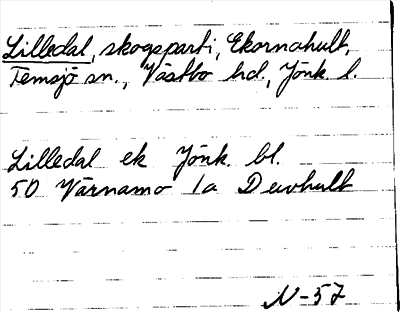 Lilledal, skogsparti, Ekornahult,
Femsjö sn., Västbo hd., Jönk. l.
Lilledal ek Jönk. bl.
50 Värnamo 1a Duvhult
N-57